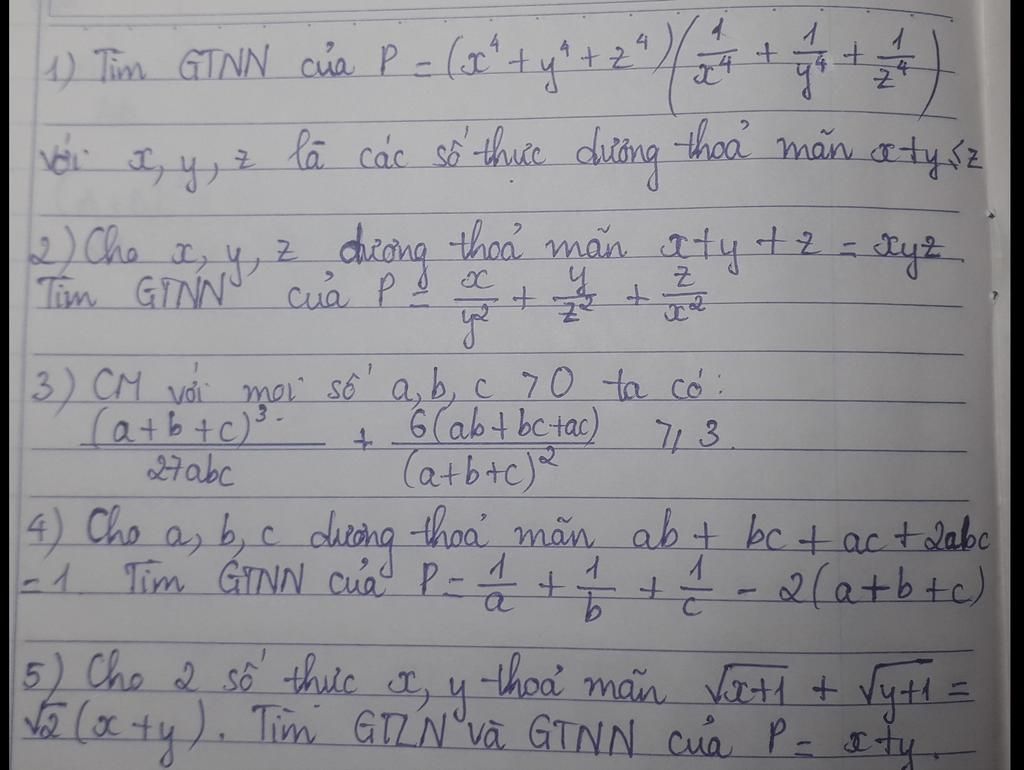 1) Tìm GTNN của P = (x⁴ + y⁴ + z⁴)(1/x⁴ + 1/y⁴ + 1/z⁴)
với x, y, z là các số thực dương thoả mãn x+y ≤ z
2) Cho x, y, z dương thoả mãn x+y+z = xyz.
Tìm GTNN của P = x/y² + y/z² + z/x²
3) CM với mọi số a, b, c > 0 ta có:
(a+b+c)³/27abc + 6(ab+bc+ac)/(a+b+c)² ≥ 3.
4) Cho a, b, c dương thoả mãn ab + bc + ac + 2abc
= 1. Tìm GTNN của P = 1/a + 1/b + 1/c - 2(a+b+c)
5) Cho 2 số thức x, y thoả mãn √(x+1) + √(y+1) =
√2(x+y). Tìm GTLN và GTNN của P = x+y.